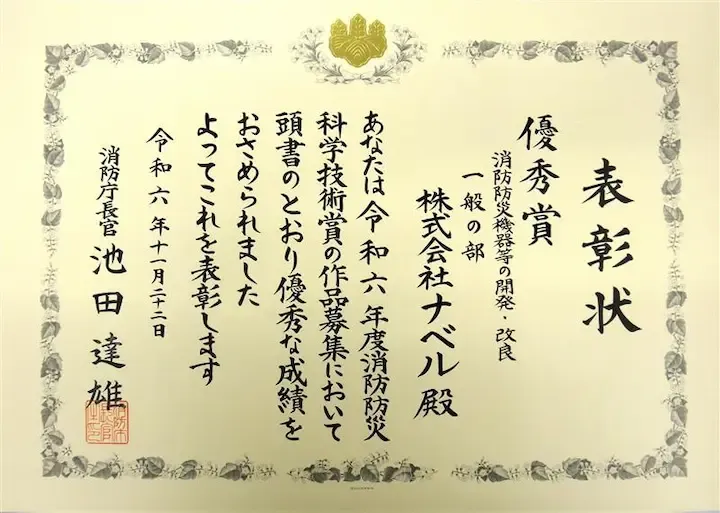 表彰状
優秀賞
消防防災機器等の開発・改良
一般の部
株式会社ナベル殿
あなたは令和六年度消防防災
科学技術賞の作品募集において
頭書のとおり優秀な成績を
おさめられました
よってこれを表彰します
令和六年十一月二十二日
消防庁長官 池田達雄